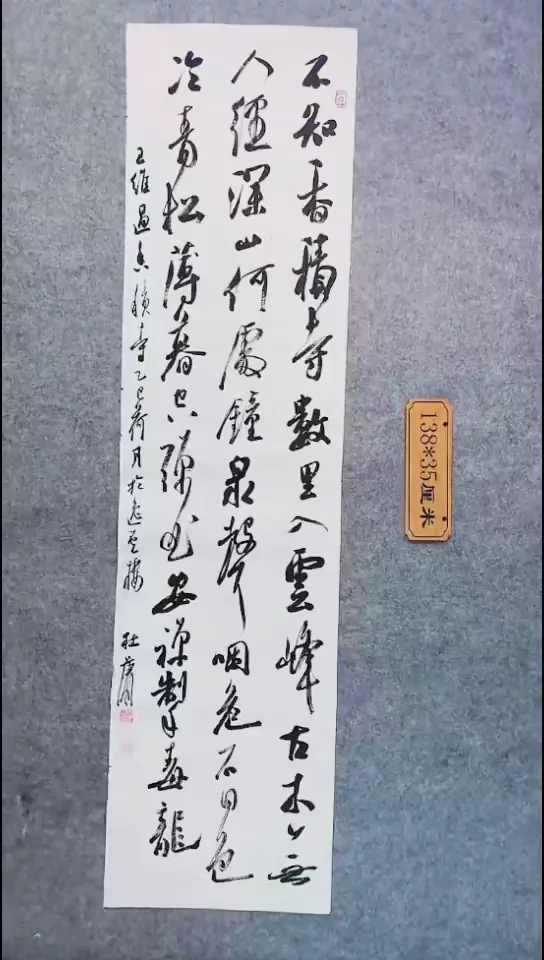 不知香積寺數里入雲峰古木無
人徑深山何處鐘泉聲咽危石日色
冷青松薄暮空潭曲安禪制毒龍
王維過香積寺乙巳荷月於云樓
杜
138*35厘米